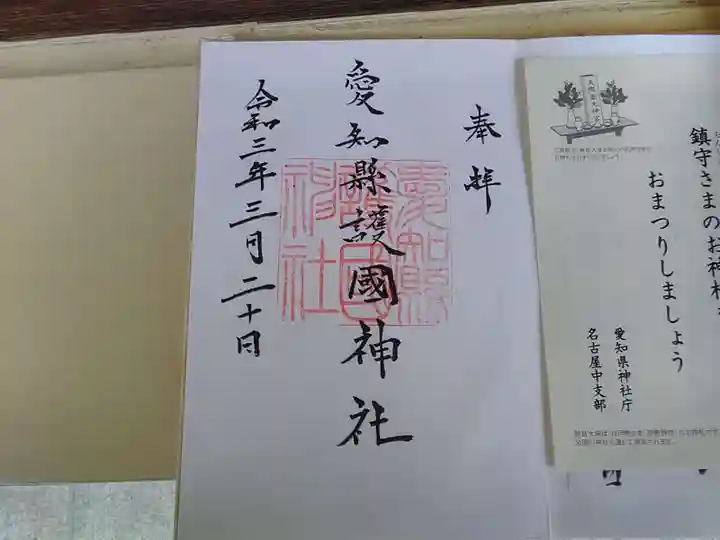 奉拝
愛知縣護國神社
令和三年三月二十日
愛知縣
護國
神社
鎮守さまのお神札を
おまつりしましょう
愛知県神社庁
名古屋中支部